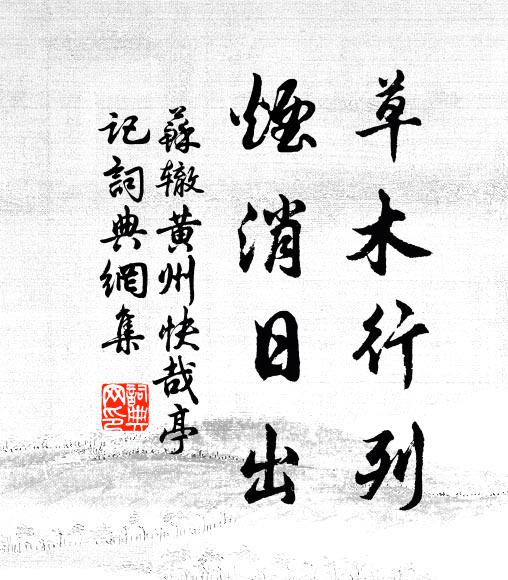 草木行列
煙消日出
蘇辙黄州快哉亭
記詞典網集
詞典
网印